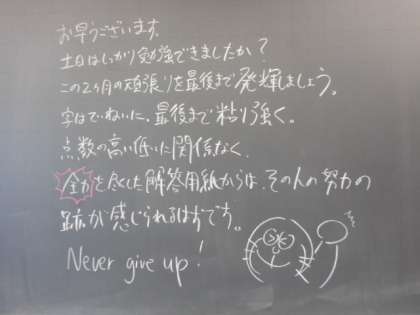 お早うございます。
土日はしっかり勉強できましたか?
この2ヶ月の頑張りを最後まで発揮しましょう。
字はていねいに、最後まで粘り強く。
点数の高い低いに関係なく、
全力を尽くした解答用紙からは、その人の努力の
跡が感じられるはずです。
Never give up!